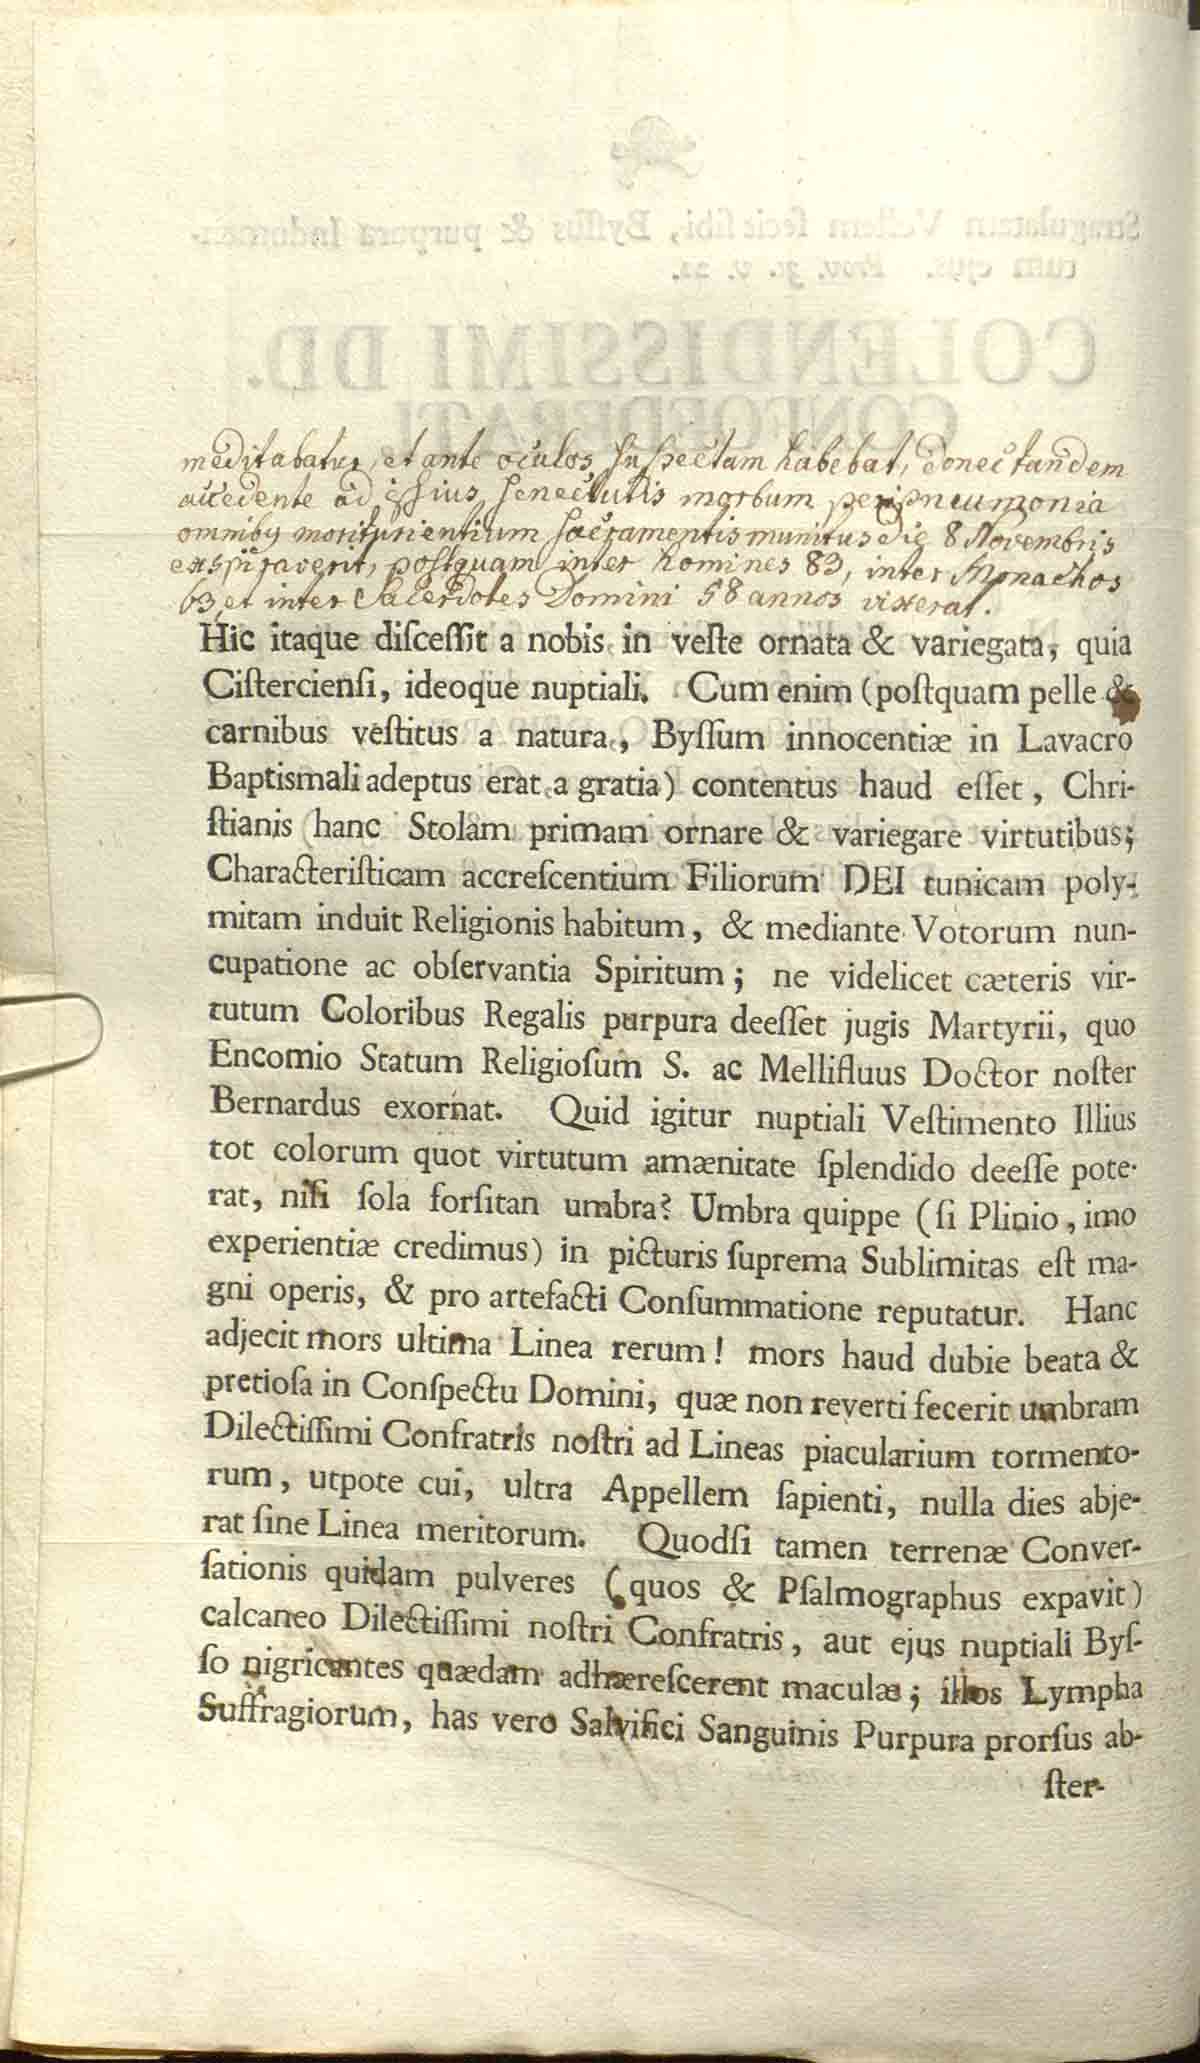 meditabatur, et ante oculos suspectam habebat, donec tandem
accedente ad ejus senectutis morbum peripneumonia
omnibus moriturientium sacramentis munitus die 8 Novembris
exspiraverit, postquam inter homines 83, inter Monachos
63, et inter Sacerdotes Domini 58 annos vixerat.
Hic itaque diſceſſit a nobis in veſte ornata & variegata, quia
Ciſtercienſi, ideoque nuptiali. Cum enim (poſtquam pelle &
carnibus veſtitus a natura, Byſſum innocentiæ in Lavacro
Baptismali adeptus erat a gratia) contentus haud eſſet, Chri-
ſtianis hanc Stolam primam ornare & variegare virtutibus;
Characteriſticam accreſcentium Filiorum DEI tunicam poly-
mitam induit Religionis habitum, & mediante Votorum nun-
cupatione ac obſervantia Spiritum; ne videlicet cæteris vir-
tutum Coloribus Regalis purpura deeſſet jugis Martyrii, quo
Encomio Statum Religioſum S. ac Mellifluus Doctor noſter
Bernardus exornat. Quid igitur nuptiali Veſtimento Illius
tot colorum quot virtutum amænitate ſplendido deeſſe pote-
rat, niſi ſola forſitan umbra? Umbra quippe (ſi Plinio, imo
experientiæ credimus) in picturis ſuprema Sublimitas eſt ma-
gni operis, & pro artefacti Conſummatione reputatur. Hanc
adjecit mors ultima Linea rerum! mors haud dubie beata &
pretioſa in Conſpectu Domini, quæ non reverti fecerit umbram
Dilectiſſimi Confratris noſtri ad Lineas piacularium tormento-
rum, utpote cui, ultra Appellem ſapienti, nulla dies abje-
rat ſine Linea meritorum. Quodſi tamen terrenæ Conver-
ſationis quidam pulveres (quos & Pſalmographus expavit)
calcaneo Dilectiſſimi noſtri Confratris, aut ejus nuptiali Byſ-
ſo nigricantes quædam adhæreſcerent maculæ; illos Lympha
Suffragiorum, has vero Salvifici Sanguinis Purpura prorſus ab-
ſter-